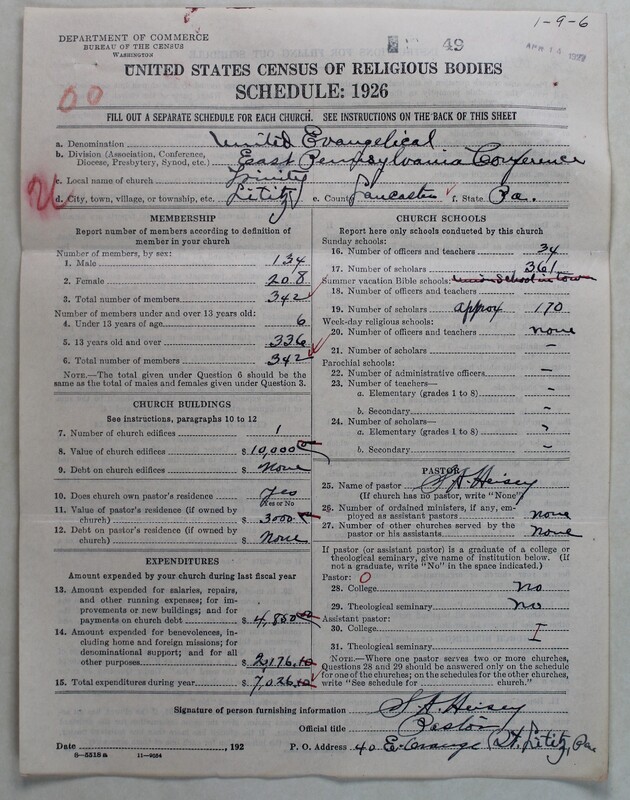 1-9-6
DEPARTMENT OF COMMERCE
BUREAU OF THE CENSUS
WASHINGTON
49
UNITED STATES CENSUS OF RELIGIOUS BODIES
SCHEDULE: 1926
00
FILL OUT A SEPARATE SCHEDULE FOR EACH CHURCH. SEE INSTRUCTIONS ON THE BACK OF THIS SHEET
a. Denomination United Evangelical
b. Division (Association, Conference, Diocese, Presbytery, Synod, etc.) East Pennsylvania Conference
c. Local name of church Trinity
d. City, town, village, or township, etc. Lititz e. County Lancaster f. State Pa.
MEMBERSHIP
Report number of members according to definition of member in your church
Number of members, by sex:
1. Male 134
2. Female 208
3. Total number of members 342
Number of members under and over 13 years old:
4. Under 13 years of age 6
5. 13 years old and over 336
6. Total number of members 342
NOTE.—The total given under Question 6 should be the same as the total of males and females given under Question 3.
CHURCH BUILDINGS
See instructions, paragraphs 10 to 12
7. Number of church edifices 1
8. Value of church edifices $ 10,000
9. Debt on church edifices $ None
10. Does church own pastor's residence Yes
Yes or No
11. Value of pastor's residence (if owned by church) $ 3000
12. Debt on pastor's residence (if owned by church) $ None
EXPENDITURES
Amount expended by your church during last fiscal year
13. Amount expended for salaries, repairs, and other running expenses; for improvements or new buildings; and for payments on church debt $ 4,850
14. Amount expended for benevolences, including home and foreign missions; for denominational support; and for all other purposes $ 2,176.10
15. Total expenditures during year $ 7,026.10
CHURCH SCHOOLS
Report here only schools conducted by this church
Sunday schools:
16. Number of officers and teachers 34
17. Number of scholars 361
Summer vacation Bible schools: Union School in town
18. Number of officers and teachers
19. Number of scholars approx 170
Week-day religious schools:
20. Number of officers and teachers none
21. Number of scholars –
Parochial schools:
22. Number of administrative officers –
23. Number of teachers—
a. Elementary (grades 1 to 8) –
b. Secondary –
24. Number of scholars—
a. Elementary (grades 1 to 8) –
b. Secondary –
PASTOR
25. Name of pastor S. A. Heisey
(If church has no pastor, write "None")
26. Number of ordained ministers, if any, employed as assistant pastors none
27. Number of other churches served by the pastor or his assistants none
If pastor (or assistant pastor) is a graduate of a college or theological seminary, give name of institution below. (If not a graduate, write "No" in the space indicated.)
Pastor: O
28. College No
29. Theological seminary No
Assistant pastor:
30. College I
31. Theological seminary
NOTE.—Where one pastor serves two or more churches, Questions 28 and 29 should be answered only on the schedule for one of the churches; on the schedules for the other churches, write "See schedule for church."
Signature of person furnishing information S. A. Heisey
Official title Pastor
Date , 192 P. O. Address 40 E. Orange St. Lititz, Pa
8—5518a 11—9054